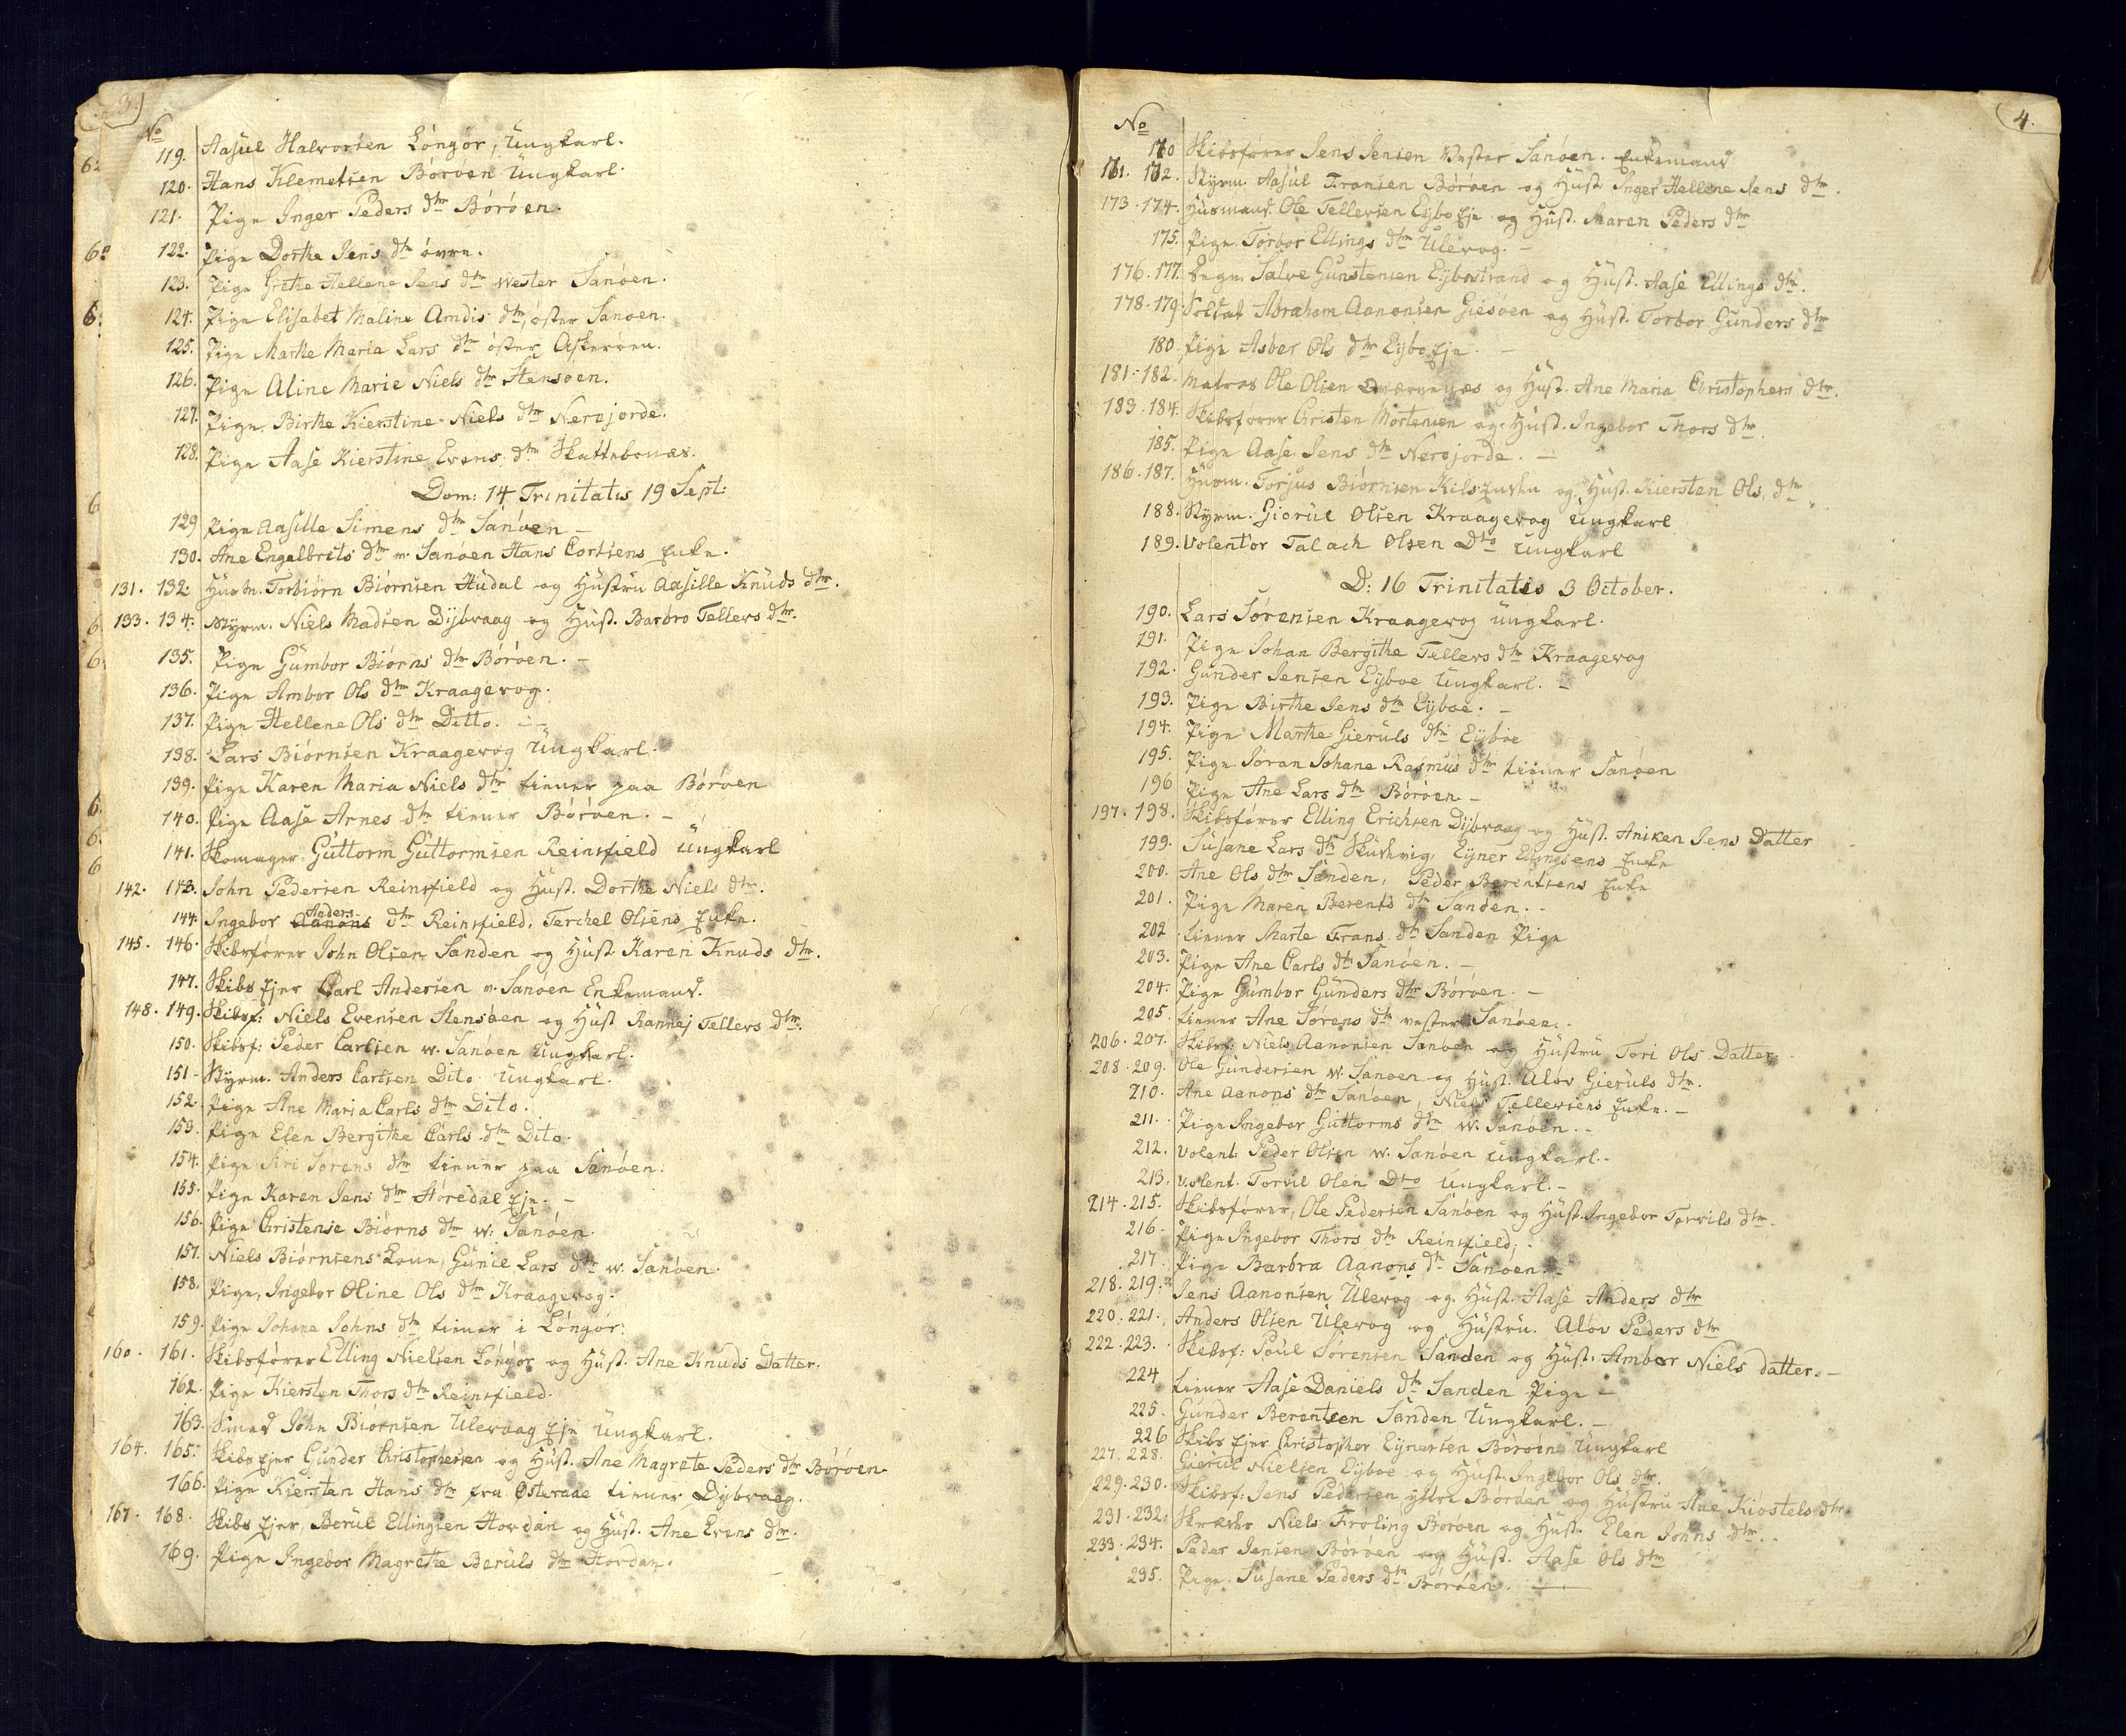 3.
No
119. Aasul Halvorsen Löngör, Ungkarl.
120. Hans Klemetsen Böröen Ungkarl.
121. Pige Inger Peders dtr Böröen.
122. Pige Dorthe Jens dtr övre.
123. Pige Grethe Hellene Jens dtr Wester Sanöen.
124. Pige Elisabet Maline Amdis dtr, öster Sanöen.
125. Pige Marthe Maria Lars dtr öster Askeröen.
126. Pige Aline Marie Niels dtr Stensöen.
127. Pige Birthe Kierstine Niels dtr Nerojorde.
128. Pige Aase Kierstine Evens dtr Skattebonæs.
Dom: 14 Trinitatis 19 Sept:
129 Pige Aasille Simens dtr Sanöen –
130. Ane Engelbrets dtr w. Sanöen Hans Cortsens Enke.
131. 132. Husm. Torbiörn Biörnsen Hudal og Hustru Aasille Knuds dtr.
133. 134. Styrm. Niels Madsen Dijbvaag og Hust. Barbro Tellevs dtr.
135. Pige Gumbor Biörns dtr Böröen. –
136. Pige Ambor Ols dtr Kraagevog.
137. Pige Hellene Ols dtr Ditto. – –
138. Lars Biörnsen Kraagevog Ungkarl.
139. Pige Karen Maria Niels dtr tiener paa Böröen
140. Pige Aase Arnes dtr tiener Böröen. –
141. Skomager Guttorm Guttormsen Reinsfield Ungkarl
142. 143. John Pedersen Reinsfield og Hust. Dorthe Niels dtr.
144. Ingebor Aanons Anders dtr Reinsfield, Terchel Olsens Enke.
145. 146. Skibsförer John Olsen Sanden og Hust. Karen Knuds dtr.
147. Skibs Ejer Carl Andersen w. Sanöen Enkemand.
148. 149. Skibsf: Niels Evensen Stensöen og Hust Rannej Tellevs dtr.
150. Skibsf: Peder Carlsen w. Sanöen Ungkarl.
151 Styrm. Anders Carlsen Dito Ungkarl.
152. Pige Ane Maria Carls dtr Dito.
153. Pige Elen Bergithe Carls dtr Dito.
154. Pige Siri Sørens dtr tiener paa Sanöen.
155. Pige Karen Jens dtr Störedal Eje. –
156. Pige Christense Biörns dtr w: Sanöen.
157. Niels Biörnsens Kone, Gunil Lars dtr w. Sanöen.
158. Pige, Ingebor Oline Ols dtr Kraagevog.
159. Pige Johane Johns dtr tiener i Löngör.
160. 161. Skibsförer Elling Nielsen Löngör og Hust. Ane Knuds Datter.
162. Pige Kiersten Thors dtr Reinsfield.
163. Smed John Biörnsen Ulevaag Eje Ungkarl.
164. 165. Skibs Ejer Gunder Christophersen og Hust. Ane Magrete Peders dtr Böröen.
166. Pige Kiersten Hans dtr fra Østeraae tiener Dybvaag.
167. 168. Skibs Ejer, Berul Ellingsen Hovdan og Hust. Ane Evens dtr.
169. Pige Ingebor Magrethe Beruls dtr Hovdan.
4.
No
170 Skibsförer Jens Jensen Vester Sanöen. Enkemand
171. 172. Styrm. Aasul Fransen Böröen og Hust. Inger Hellene Jens dtr.
173. 174. Husmand Ole Tellevsen Eijbo Eje og Hust. Maren Peders dtr
175. Pige Torbor Ellings dtr Ulevog. –
176. 177. Salve Gunstensen Eijbostrand og Hust. Aase Ellings dtr.
178. 179. Soldat Abraham Aanonsen Giesöen og Hust. Torbor Gunders dtr
180. Pige Asber Ols dtr Eijbo Eje. –
181. 182. Matros Ole Olsen Qværnenæs og Hust. Ane Maria Christophers dtr.
183. 184. Skibsförer Christen Mortensen og Hust. Ingebor Thors dtr.
185. Pige Aase Jens dtr Nerojorde. –
186. 187. Husm. Torjus Biörnsen og Hust. Kiersten Ols dtr
188. Styrm. Gierul Olsen Kraagevog Ungkarl
189. Volentör Talach Olsen Dto Ungkarl
D: 16 Trinitatis 3 October.
190. Lars Sörensen Kraagevog Ungkarl.
191. Pige Johan Bergithe Tellevs dtr Kraagevog
192. Gunder Jensen Eijboe Ungkarl. –
193. Pige Birthe Jens dtr Eijboe. –
194. Pige Marthe Gieruls dtr Eijboe
195. Pige Joran Johane Rasmus dtr tiener Sanöen
196 Pige Ane Lars dtr Böröen –
197. 198. Skibsförer Elling Erichsen Dijbvaag og Hust. Aniken Jens Datter
199. Susane Lars dtr Skuthevig, Ejner Ellingsens Enke
200. Ane Ols dtr Sanden, Peder Berentsens Enke
201. Pige Maren Berents dtr Sanden. –
202 tiener Marte Frans dtr Sanden Pige
203. Pige Ane Carls dtr Sanöen. –
204. Pige Gumbor Gunders dtr Böröen. –
205. tiener Ane Sörens dtr vester Sanöen. –
206. 207. Skibsf. Niels Aanonsen Sanöen og Hustru Tori Ols Datter
208. 209. Ole Gundersen w. Sanöen og Hust. Alöv Gieruls dtr.
210. Ane Aanons dtr Sanöen, Niels Tellevsens Enke. –
211. Pige Ingebor Guttorms dtr w. Sanöen. –
212. Volent: Peder Olsen w. Sanöen Ungkarl. –
213. Volent. Torvil Olen Dto Ungkarl. –
214. 215. Skibsförer, Ole Pedersen Sanöen og Hust. Ingebor Torvils dtr. –
216. Pige Ingebor Thors dtr Reinsfield, –
217. Pige Barbra Aanons dtr Sanöen. –
218. 219. Jens Aanonsen Ulevog og Hust. Aase Anders dtr
220. 221. Anders Olsen Ulevog og Hustru. Alöv Peders dtr
222. 223. Skibsf: Poul Sörensen Sanden og Hust: Ambor Niels datter. –
224 tiener Aase Daniels dtr Sanden Pige –
225. Gunder Berentsen Sanden Ungkarl. –
226 Skibs Ejer Christopher Eijnersen Böröen Ungkarl
227. 228. Gierul Nielsen Eijboe og Hust. Ingebor Ols dtr.
229. 230. Skibsf: Jens Pedersen ytre Böröen og Hustru Ane Kiöstels dtr
231. 232. Niels Fröling Böröen og Hust. Elen Johns dtr. –
233. 234. Peder Jensen Böröen og Hust. Aase Ols dtr
235. Pige Susane Peders dtr Böröen. –